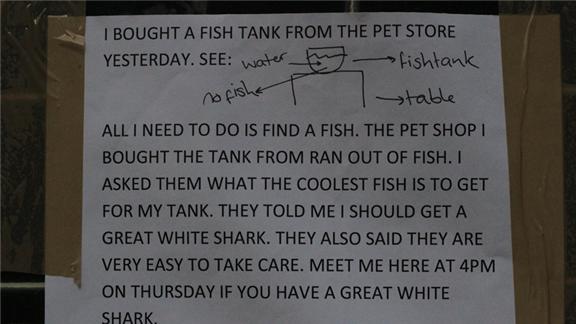 I BOUGHT A FISH TANK FROM THE PET STORE
YESTERDAY. SEE: water fishtank
no fish table
ALL I NEED TO DO IS FIND A FISH. THE PET SHOP I
BOUGHT THE TANK FROM RAN OUT OF FISH. I
ASKED THEM WHAT THE COOLEST FISH IS TO GET
FOR MY TANK. THEY TOLD ME I SHOULD GET A
GREAT WHITE SHARK. THEY ALSO SAID THEY ARE
VERY EASY TO TAKE CARE. MEET ME HERE AT 4PM
ON THURSDAY IF YOU HAVE A GREAT WHITE
SHARK.